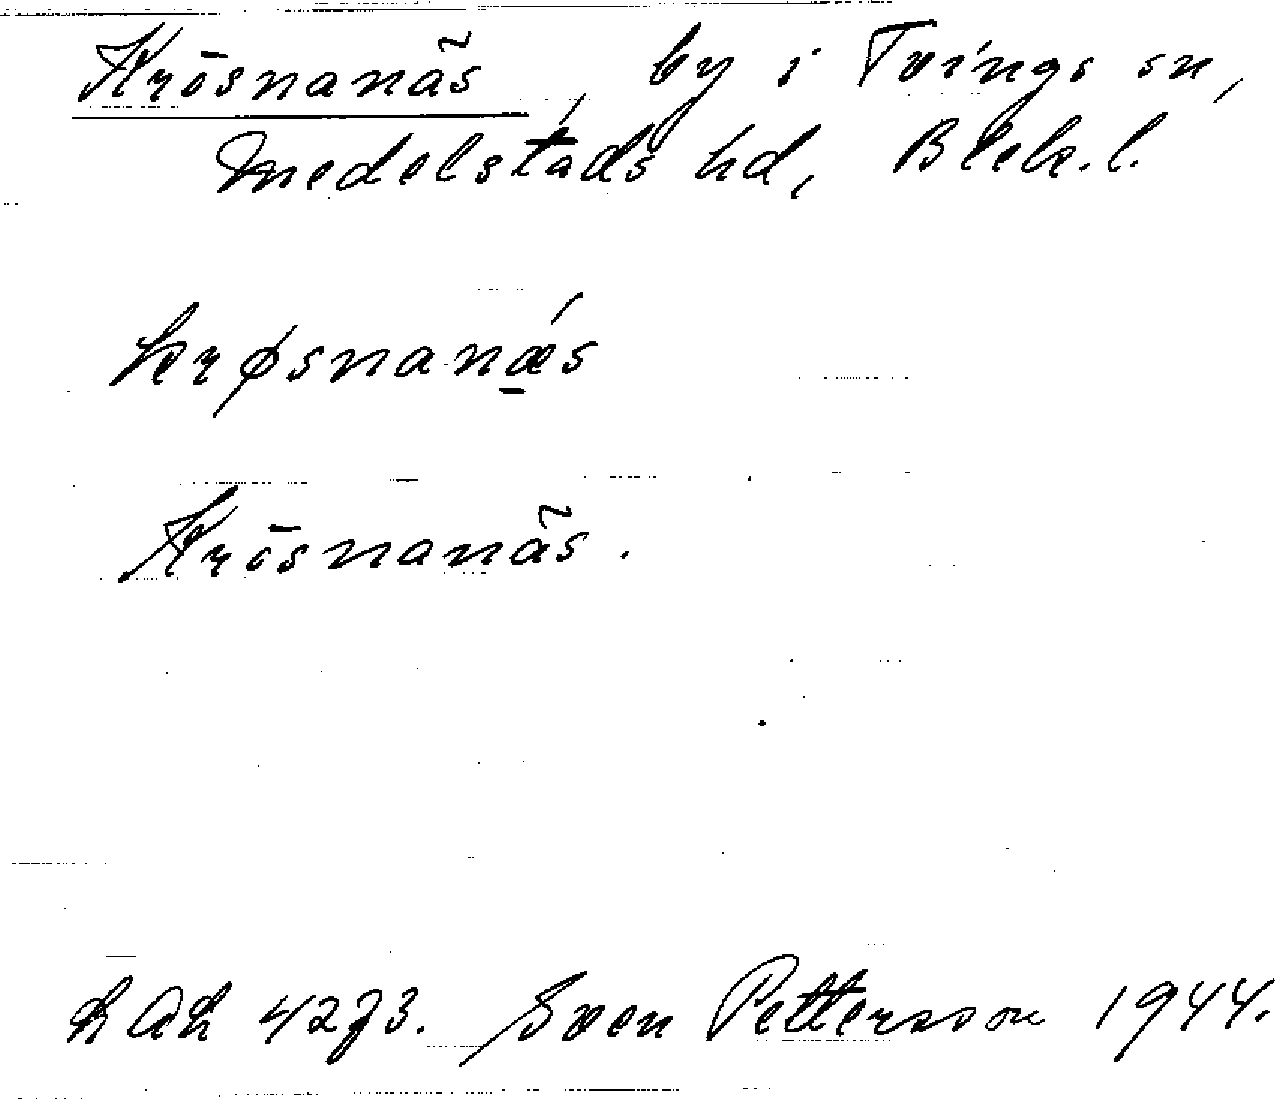 Krösnanäs, by i Tvings sn,
Medelstads hd, Blek.l.
krøsnanǽs
Krösnanäs.
LAL 4273. Sven Pettersson 1944.